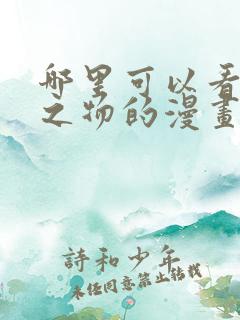 哪里可以看
之物的漫畫
詩和少年
未经同意禁止转载